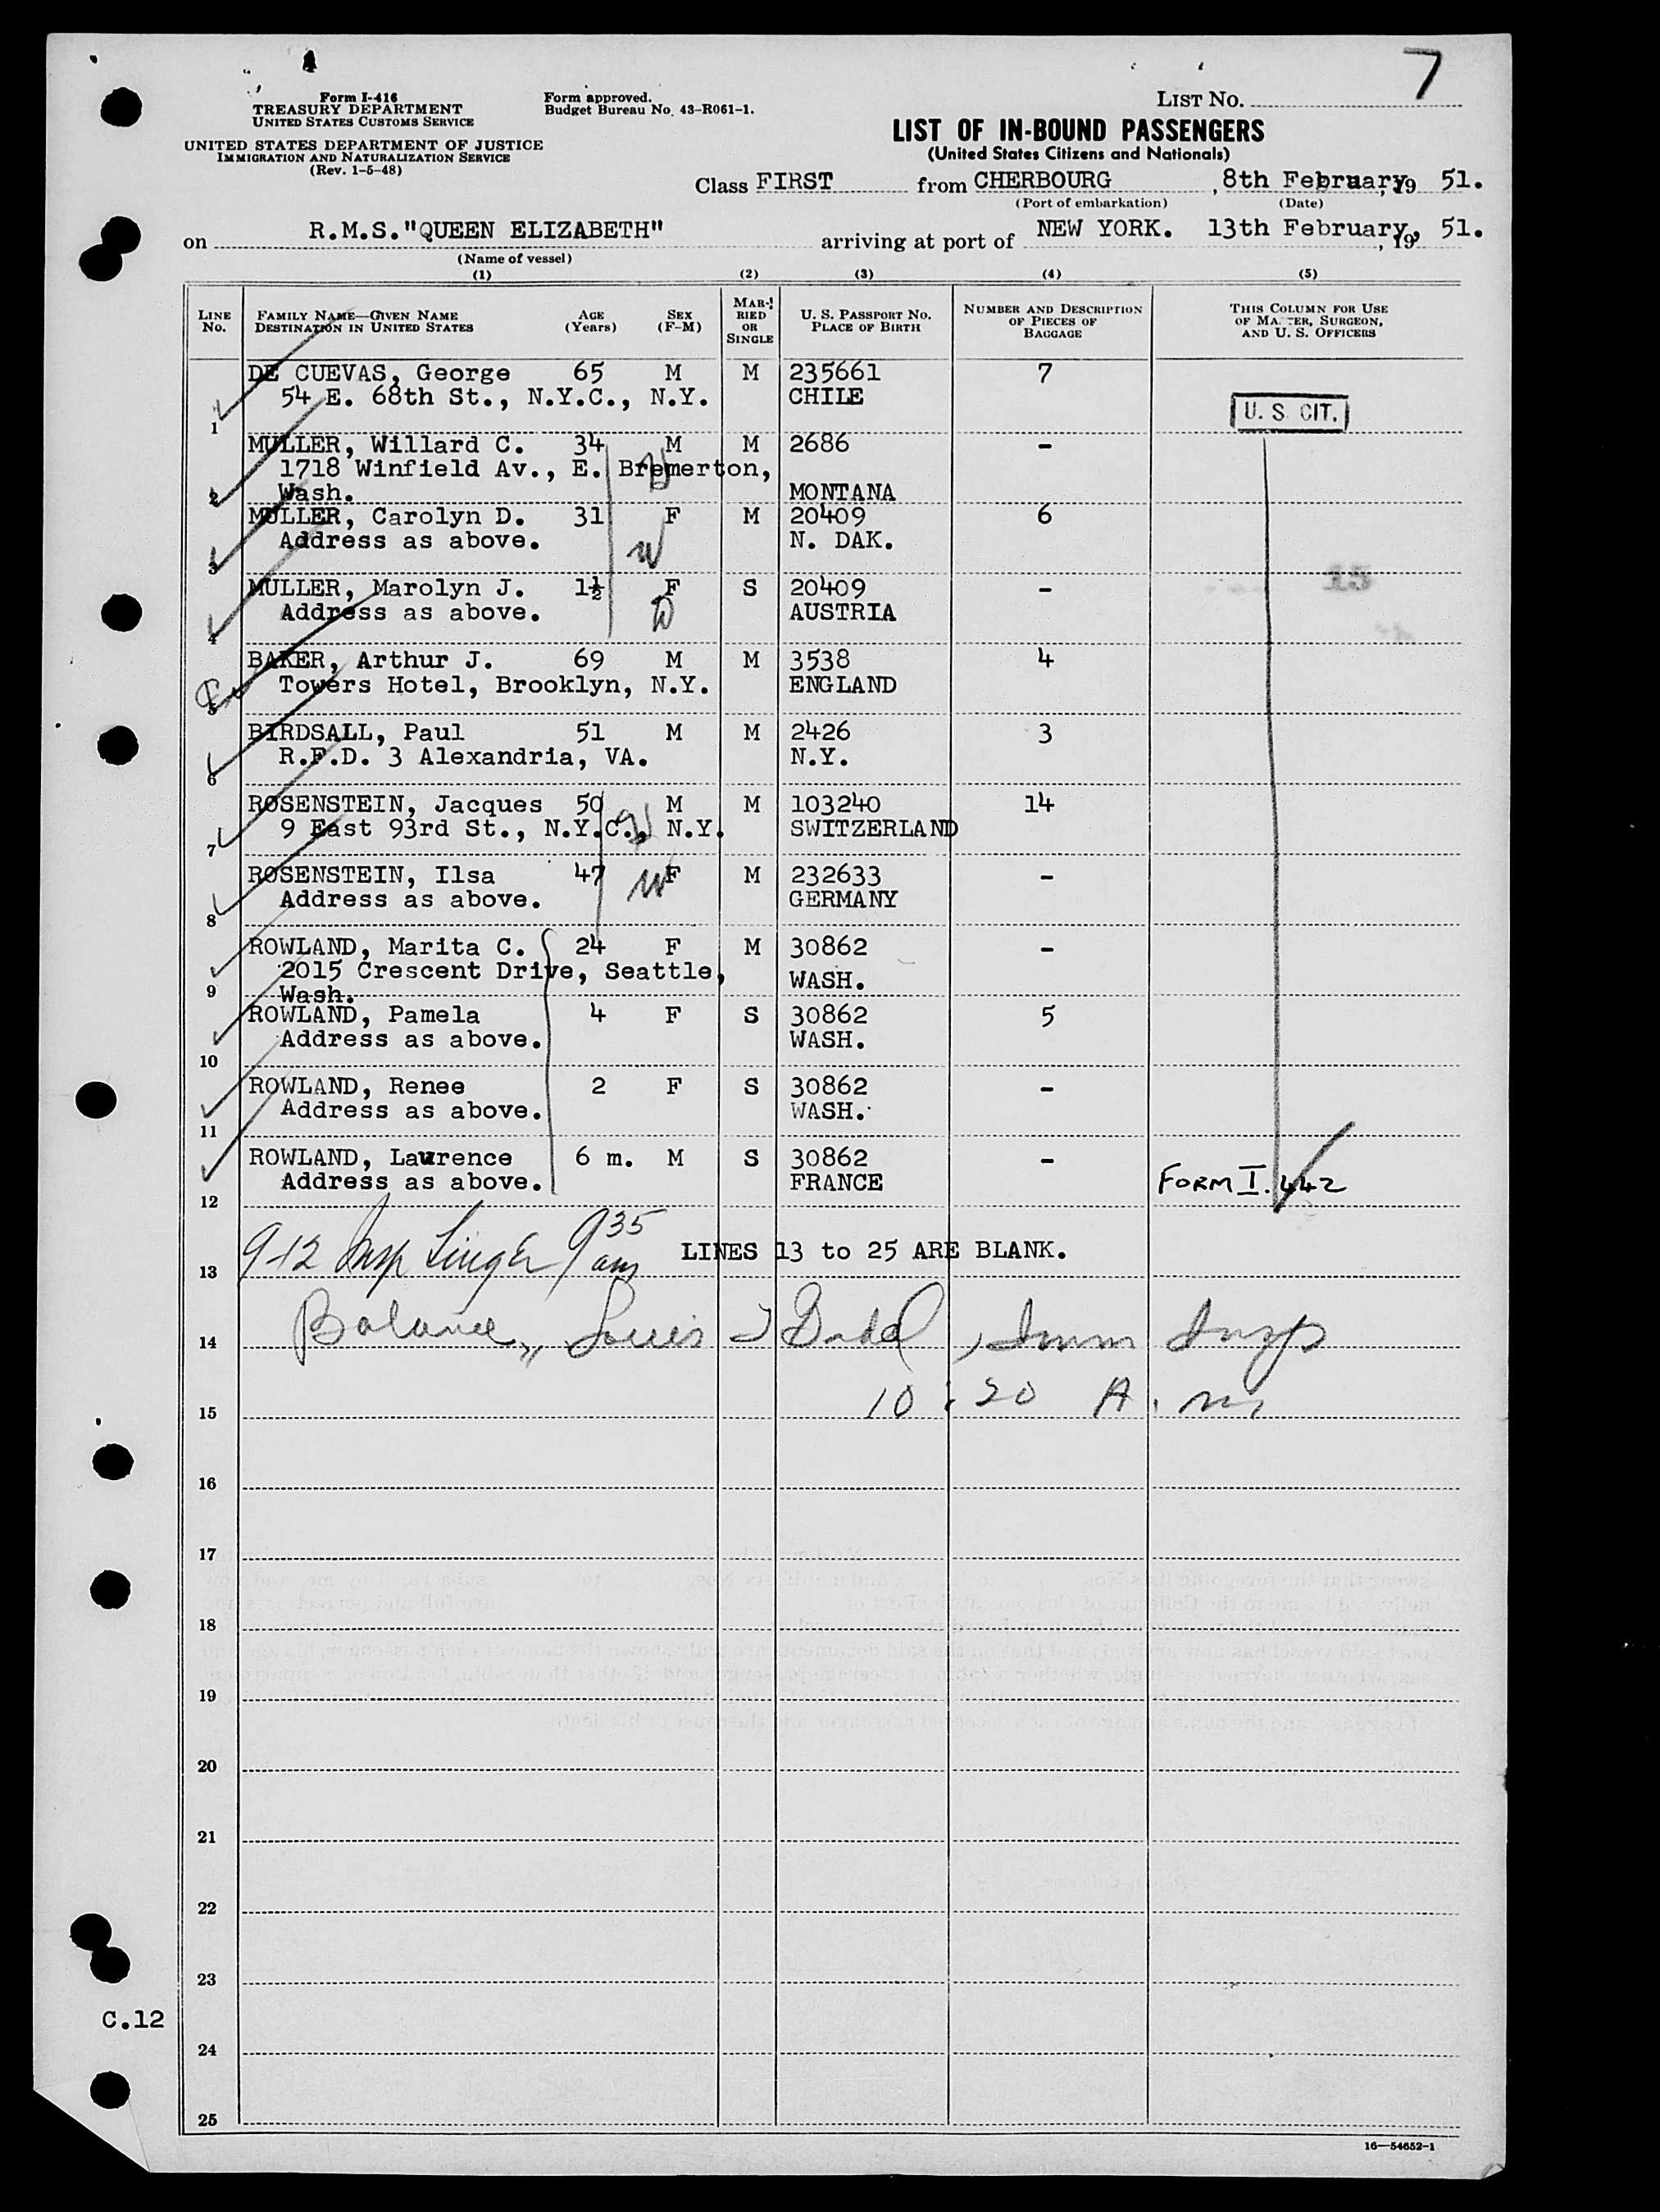 7
Form I-416
TREASURY DEPARTMENT
UNITED STATES CUSTOMS SERVICE
UNITED STATES DEPARTMENT OF JUSTICE
IMMIGRATION AND NATURALIZATION SERVICE
(Rev. 1-5-48)
Form approved.
Budget Bureau No. 43-R061-1.
LIST NO.
LIST OF IN-BOUND PASSENGERS
(United States Citizens and Nationals)
Class FIRST from CHERBOURG, 8th February, 19 51.
(Port of embarkation) (Date)
on R.M.S."QUEEN ELIZABETH" arriving at port of NEW YORK. 13th February, 19 51.
(Name of vessel)
(1) (2) (3) (4) (5)
LINE No. FAMILY NAME—GIVEN NAME DESTINATION IN UNITED STATES AGE (Years) SEX (F-M) MARRIED OR SINGLE U. S. PASSPORT NO. PLACE OF BIRTH NUMBER AND DESCRIPTION OF PIECES OF BAGGAGE THIS COLUMN FOR USE OF MASTER, SURGEON, AND U. S. OFFICERS
DE CUEVAS, George 65 M M 235661 7
54 E. 68th St., N.Y.C., N.Y. CHILE
1 U. S. CIT.
MULLER, Willard C. 34 M M 2686 -
1718 Winfield Av., E. Bremerton,
2 Wash. MONTANA
MULLER, Carolyn D. 31 F M 20409 6
Address as above. N. DAK.
3 W
MULLER, Marolyn J. 1½ F S 20409 -
Address as above. AUSTRIA
4 D
BAKER, Arthur J. 69 M M 3538 4
Towers Hotel, Brooklyn, N.Y. ENGLAND
5
BIRDSALL, Paul 51 M M 2426 3
R.F.D. 3 Alexandria, VA. N.Y.
6
ROSENSTEIN, Jacques 50 M M 103240 14
9 East 93rd St., N.Y.C., N.Y. SWITZERLAND
7
ROSENSTEIN, Ilsa 47 W F M 232633 -
Address as above. GERMANY
8
ROWLAND, Marita C. 24 F M 30862 -
2015 Crescent Drive, Seattle, WASH.
9 Wash.
ROWLAND, Pamela 4 F S 30862 5
Address as above. WASH.
10
ROWLAND, Renee 2 F S 30862 -
Address as above. WASH.
11
ROWLAND, Laurence 6 m. M S 30862 -
Address as above. FRANCE FORM I. 442
12
9-12 Insp 9 35 am LINES 13 to 25 ARE BLANK.
13
14 Balance, Louis Imm Insp
15 10:20 A.m.
16
17
18
19
20
21
22
23
C.12
24
25
16—54652-1